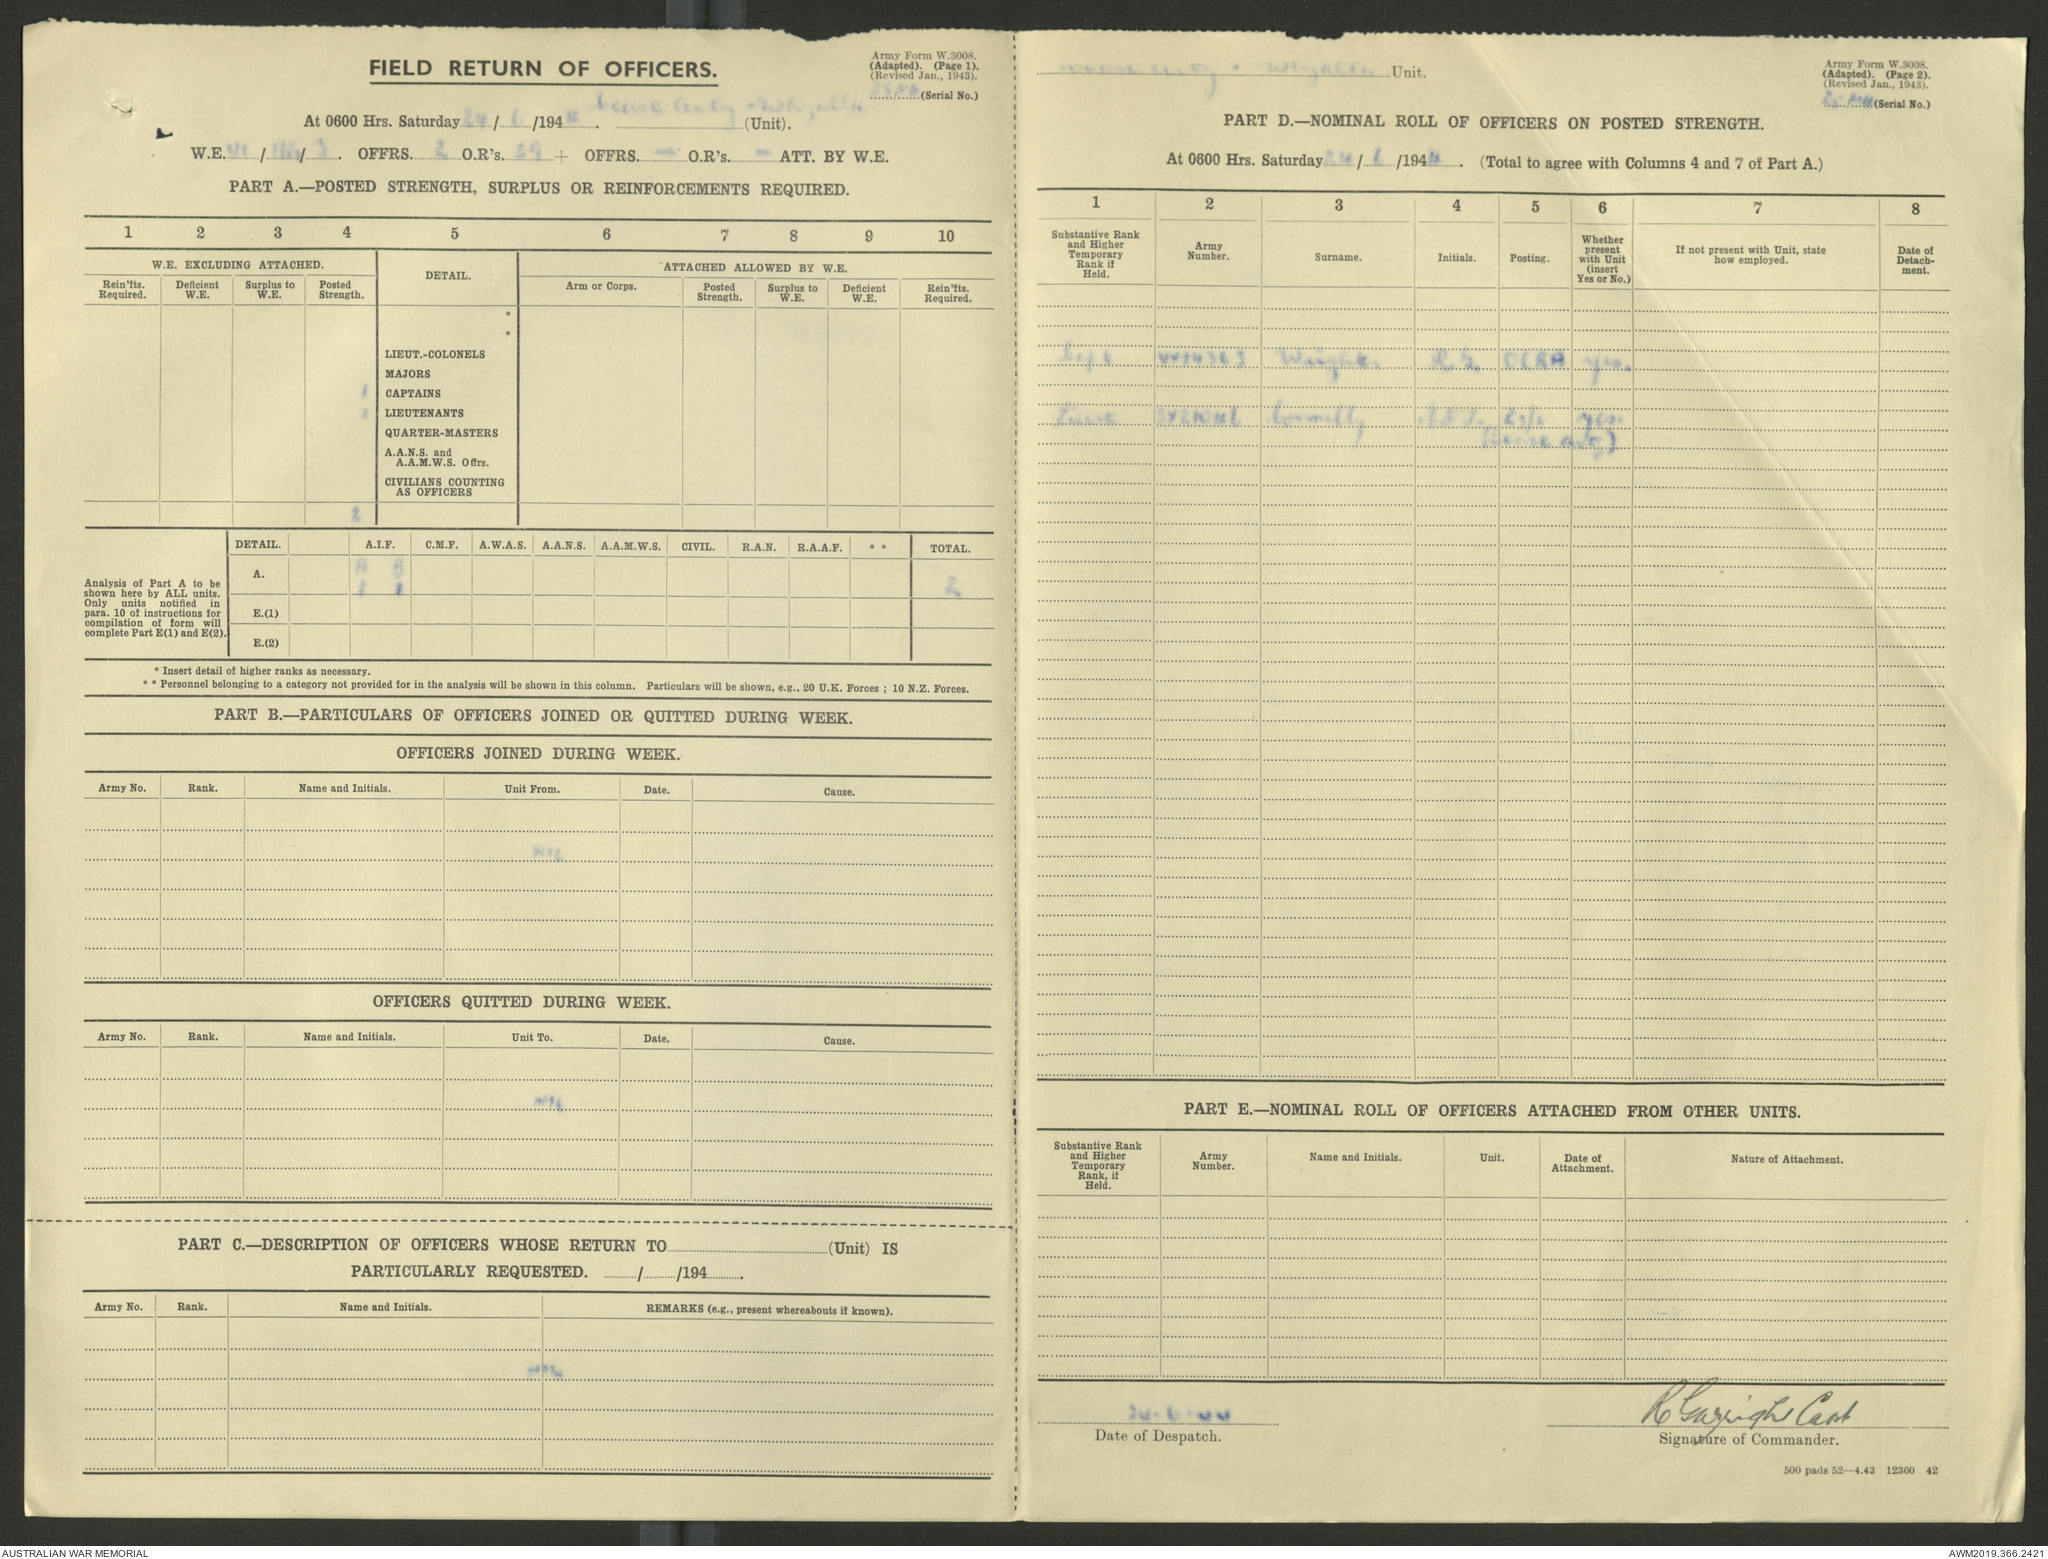 FIELD RETURN OF OFFICERS.
Army Form W.3008.
(Adapted). (Page 1).
(Revised Jan., 1943).
(Serial No.)
At 0600 Hrs. Saturday 24/6/1944. (Unit).
W.E. / / . OFFRS. 2 O.R's. 29 + OFFRS. — O.R's. — ATT. BY W.E.
PART A.—POSTED STRENGTH, SURPLUS OR REINFORCEMENTS REQUIRED.
1 2 3 4 5 6 7 8 9 10
W.E. EXCLUDING ATTACHED. DETAIL. ATTACHED ALLOWED BY W.E.
Rein'fts. Required. Deficient W.E. Surplus to W.E. Posted Strength. Arm or Corps. Posted Strength. Surplus to W.E. Deficient W.E. Rein'fts. Required.
*
*
LIEUT.-COLONELS
MAJORS
1 CAPTAINS
1 LIEUTENANTS
QUARTER-MASTERS
A.A.N.S. and
A.A.M.W.S. Offrs.
CIVILIANS COUNTING
AS OFFICERS
2
DETAIL. A.I.F. C.M.F. A.W.A.S. A.A.N.S. A.A.M.W.S. CIVIL. R.A.N. R.A.A.F. * * TOTAL.
Analysis of Part A to be
shown here by ALL units.
Only units notified in
para. 10 of instructions for
compilation of form will
complete Part E(1) and E(2).
A. A B
1 1 2
E.(1)
E.(2)
* Insert detail of higher ranks as necessary.
* * Personnel belonging to a category not provided for in the analysis will be shown in this column. Particulars will be shown, e.g., 20 U.K. Forces ; 10 N.Z. Forces.
PART B.—PARTICULARS OF OFFICERS JOINED OR QUITTED DURING WEEK.
OFFICERS JOINED DURING WEEK.
Army No. Rank. Name and Initials. Unit From. Date. Cause.
OFFICERS QUITTED DURING WEEK.
Army No. Rank. Name and Initials. Unit To. Date. Cause.
PART C.—DESCRIPTION OF OFFICERS WHOSE RETURN TO (Unit) IS
PARTICULARLY REQUESTED. / /194 .
Army No. Rank. Name and Initials. REMARKS (e.g., present whereabouts if known).
Unit.
Army Form W.3008.
(Adapted). (Page 2).
(Revised Jan., 1943).
(Serial No.)
PART D.—NOMINAL ROLL OF OFFICERS ON POSTED STRENGTH.
At 0600 Hrs. Saturday 24/6/1944. (Total to agree with Columns 4 and 7 of Part A.)
1 2 3 4 5 6 7 8
Substantive Rank and Higher Temporary Rank if Held. Army Number. Surname. Initials. Posting. Whether present with Unit (insert Yes or No.) If not present with Unit, state how employed. Date of Detach- ment.
Capt Wright R.G. yes.
Lieut Connelly yes.
PART E.—NOMINAL ROLL OF OFFICERS ATTACHED FROM OTHER UNITS.
Substantive Rank and Higher Temporary Rank, if Held. Army Number. Name and Initials. Unit. Date of Attachment. Nature of Attachment.
24-6-44
Date of Despatch.
R G Wright Capt
Signature of Commander.
500 pads 52—4.43 12360 42
AUSTRALIAN WAR MEMORIAL
AWM2019.366.2421